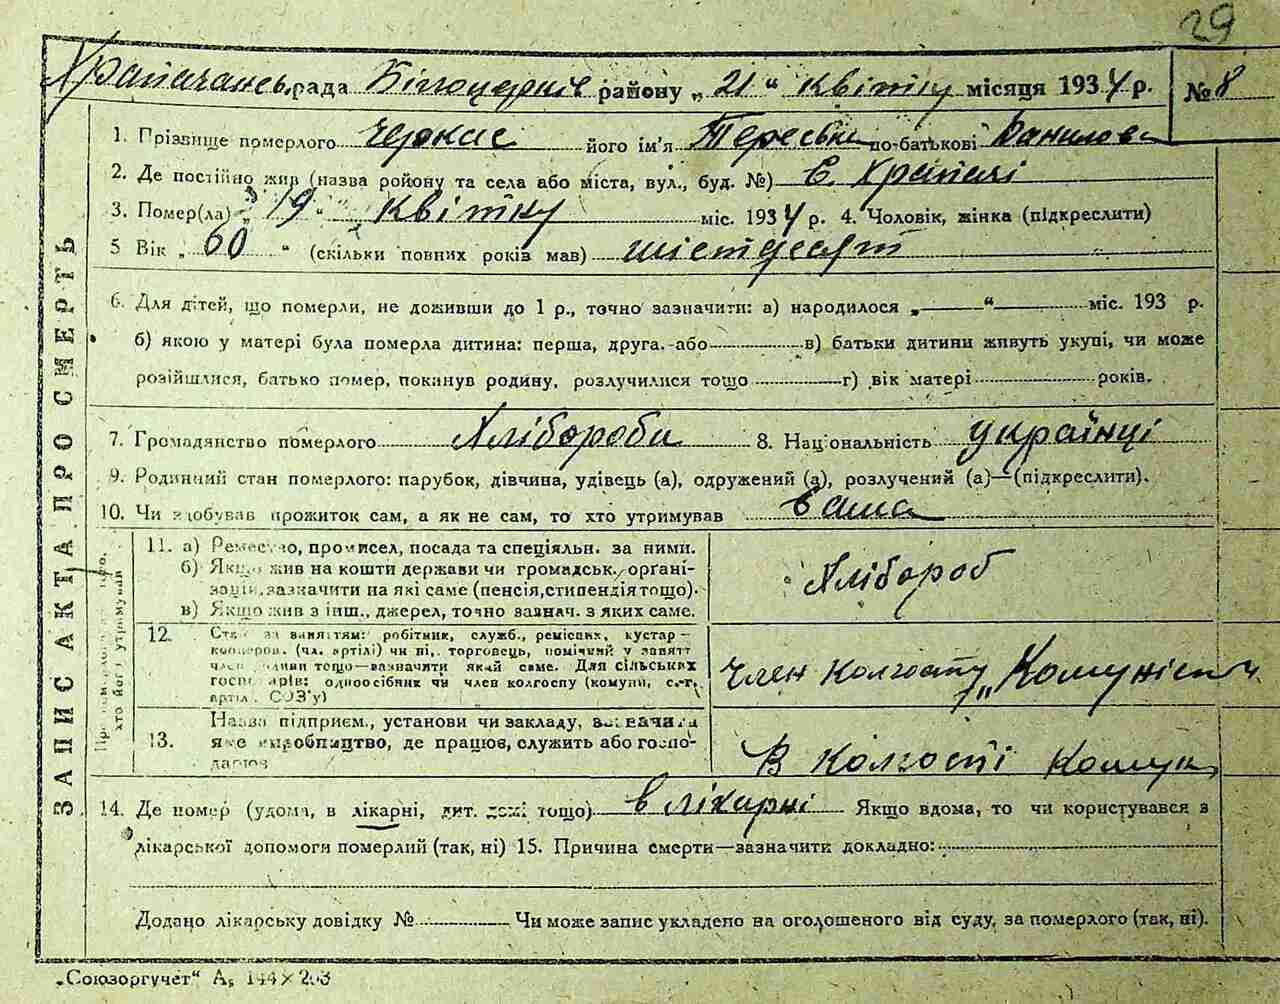 29
Храпачансь рада Білоцерків району „21“ квітку місяця 1934 р. № 8
ЗАПИС АКТА ПРО СМЕРТЬ
1. Прізвище померлого Черкас його ім'я Тереська по-батькові Данилова
2. Де постійно жив (назва ройону та села або міста, вул., буд. №) С. Храпачі
3. Помер(ла) „19“ квітку міс. 1934 р. 4. Чоловік, жінка (підкреслити)
5 Вік „60“ (скільки повних років мав) шістдесят
6. Для дітей, що померли, не доживши до 1 р., точно зазначити: а) народилося „—“— міс. 193 р.
б) якою у матері була померла дитина: перша, друга. або в) батьки дитини живуть укупі, чи може
розійшлися, батько помер, покинув родину, розлучилися тощо г) вік матері років.
7. Громадянство померлого Хлібороби 8. Національність українці
9. Родинний стан померлого: парубок, дівчина, удівець (а), одружений (а), розлучений (а)—(підкреслити).
10. Чи здобував прожиток сам, а як не сам, то хто утримував сама
хто його утримував
11. а) Ремество, промисел, посада та спеціяльн. за ними.
б) Якщо жив на кошти держави чи громадськ. органі-
зацій, зазначити на які саме (пенсія, стипендія тощо).
в) Якщо жив з інш., джерел, точно зазнач. з яких саме.
Хлібороб
12. Стан за заняттям: робітник, служб., ремісник, кустар—
кооперов. (чл. артілі) чи ні, торговець, помічний у занятт
член родини тощо—зазначити який саме. Для сільських
господарів: одноосібник чи член колгоспу (комуни, с.-г.
артіл. СОЗ'у)
Член колгоспу „Комуніст
13. Назва підприєм., установи чи закладу, визначити
яке виробництво, де працює, служить або госпо-
дарює
В колгоспі Комун
14. Де помер (удома, в лікарні, дит. домі тощо) в лікарні Якщо вдома, то чи користувався з
лікарської допомоги померлий (так, ні) 15. Причина смерти—зазначити докладно:
Додано лікарську довідку № Чи може запис укладено на оголошеного від суду, за померлого (так, ні).
„Союзоргучет“ А5 144×203